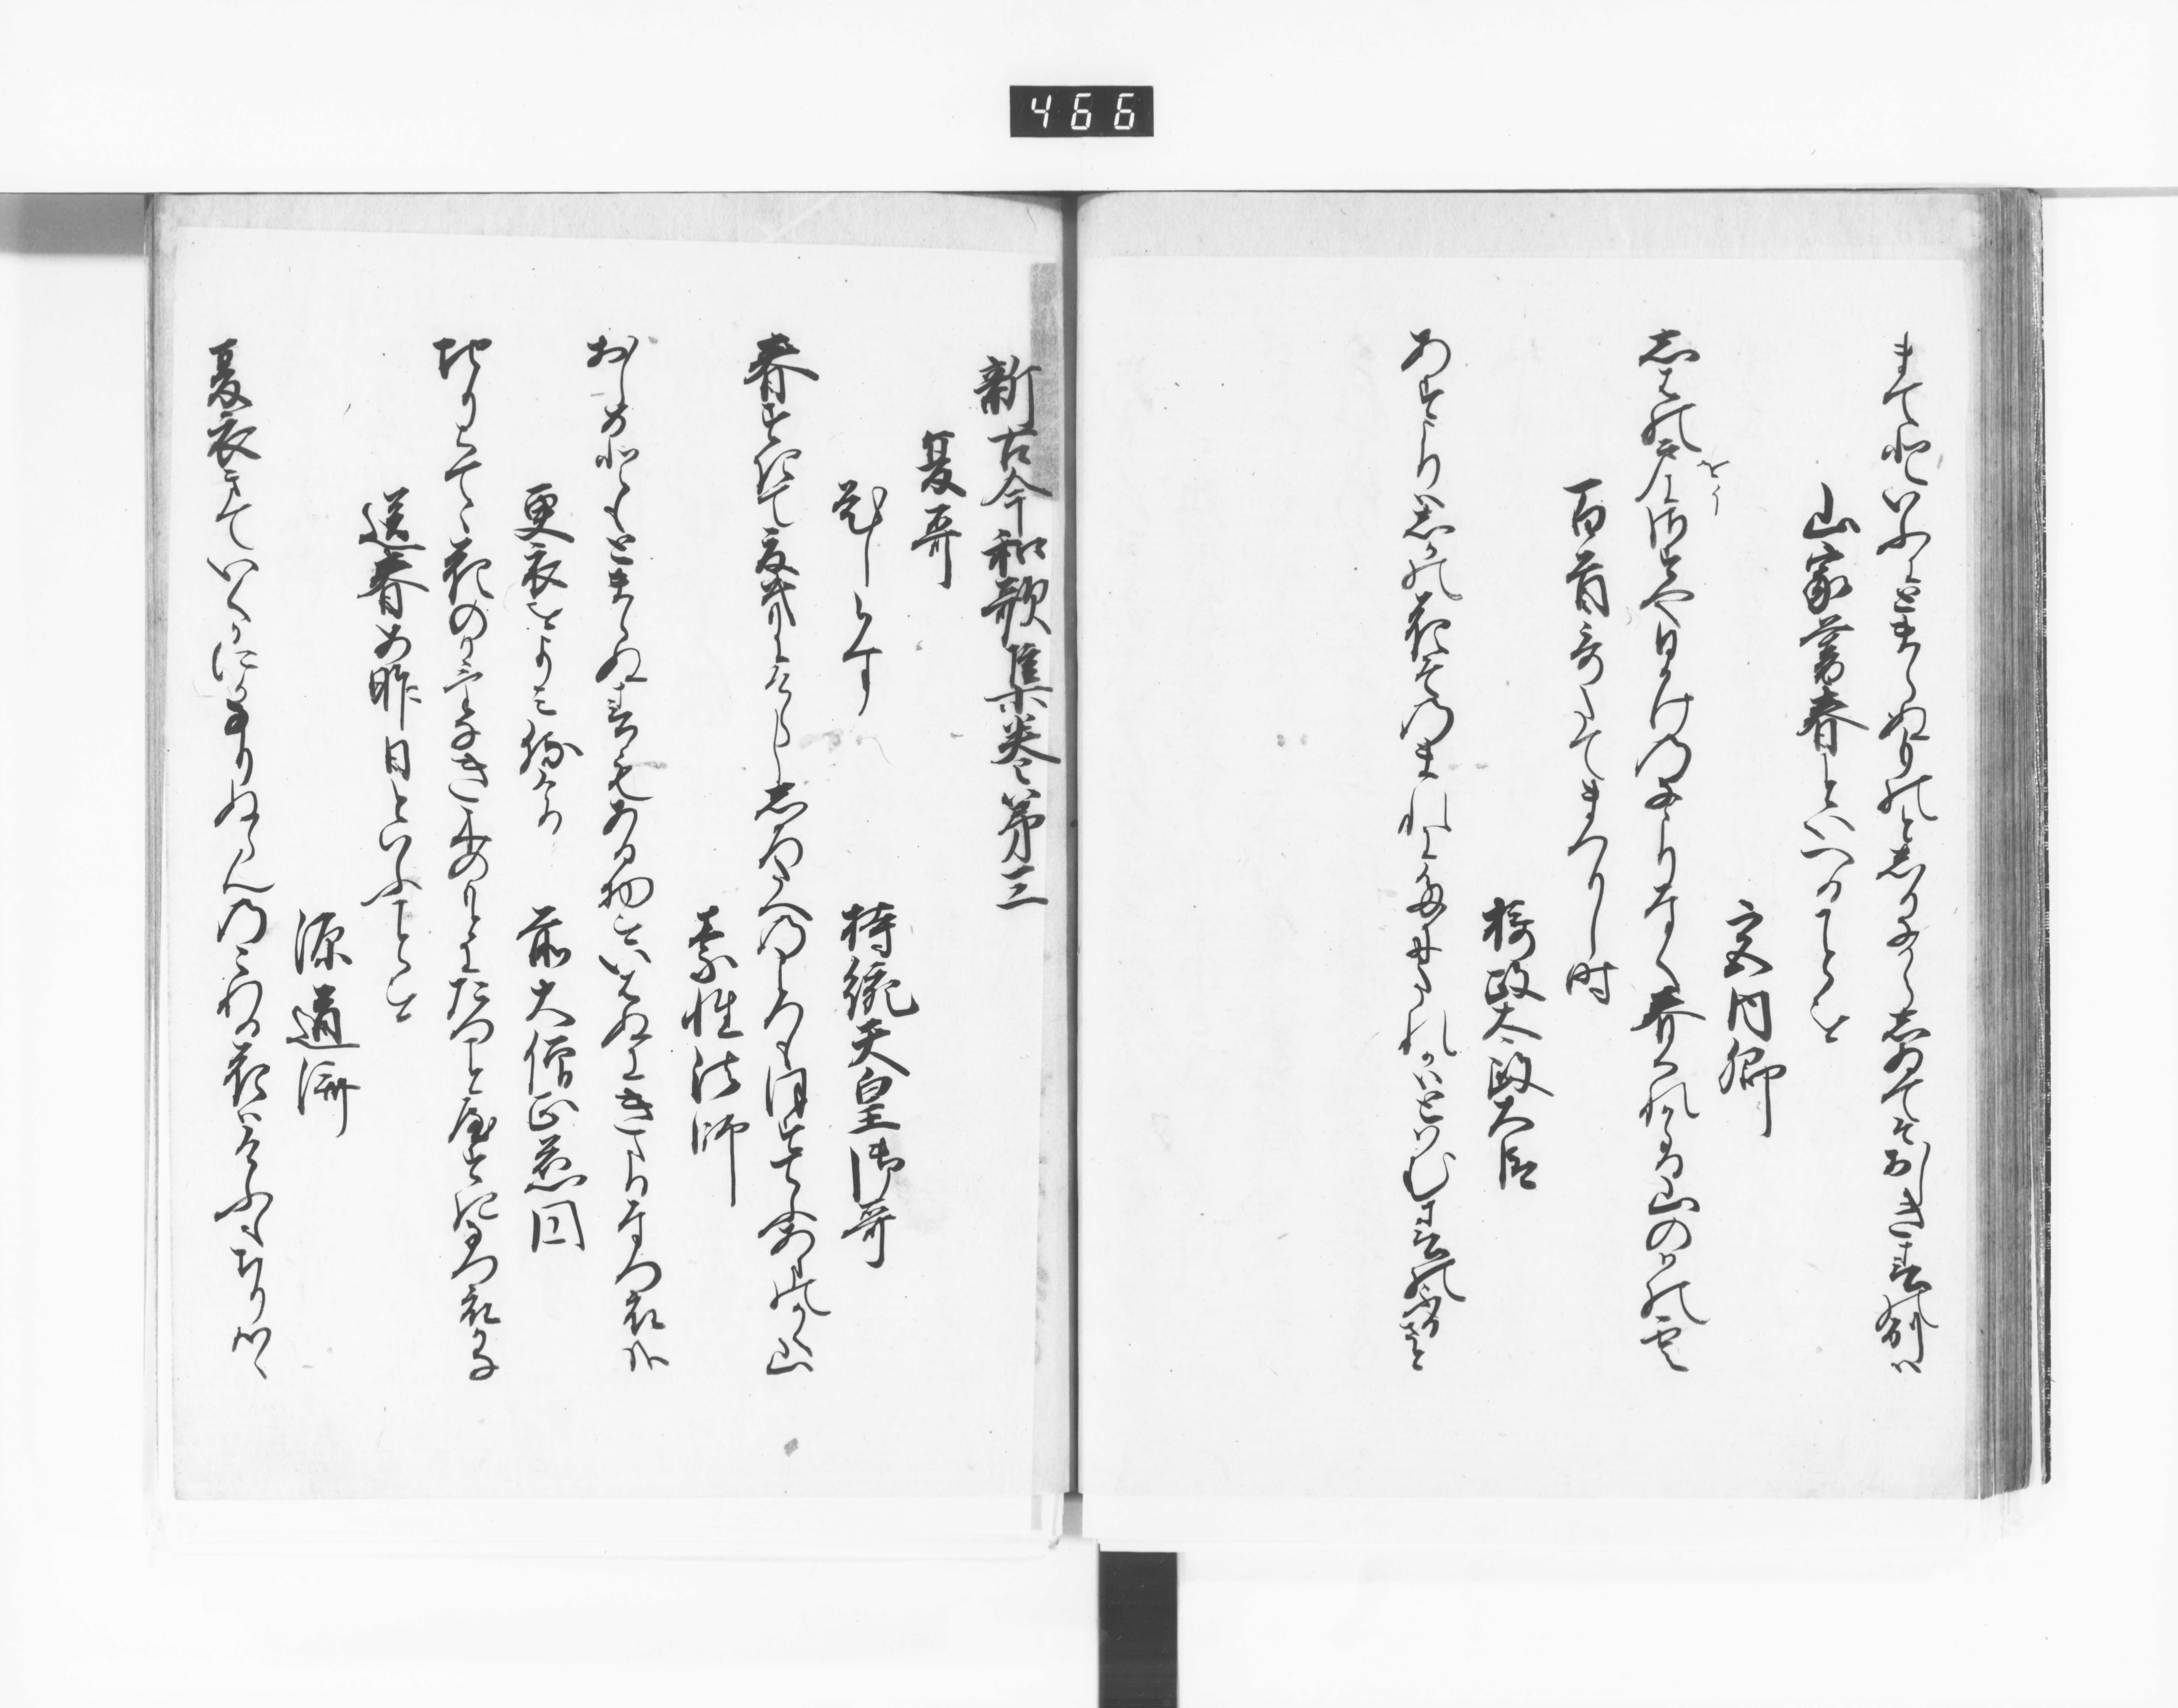 466
まてといふにとまらぬ物としりなからしゐてそおしき春の別は
山家暮春といへる心を
宮内卿
柴の戸をさすや日かけのなこりなく春くれかゝる山のはの雲
百首哥たてまつりし時
摂政太政大臣
あすよりはしかの花そのまれにたにたれかはとはむ春のふるさと
新古今和歌集巻第三
夏哥
題しらす
持統天皇御哥
春すきて夏きにけらし志ろたへのころもほすてふあまのかく山
素性法師
おしめともとまらぬ春もある物をいはぬにきたる夏衣かな
更衣をよみ侍ける
前大僧正慈円
ちりはてゝ花のかけなきこのもとにたつことやすきなつ衣かな
送春如昨日といふことを
源道済
夏衣きていくかにかなりぬらんのこれる花はけふもちりつゝ